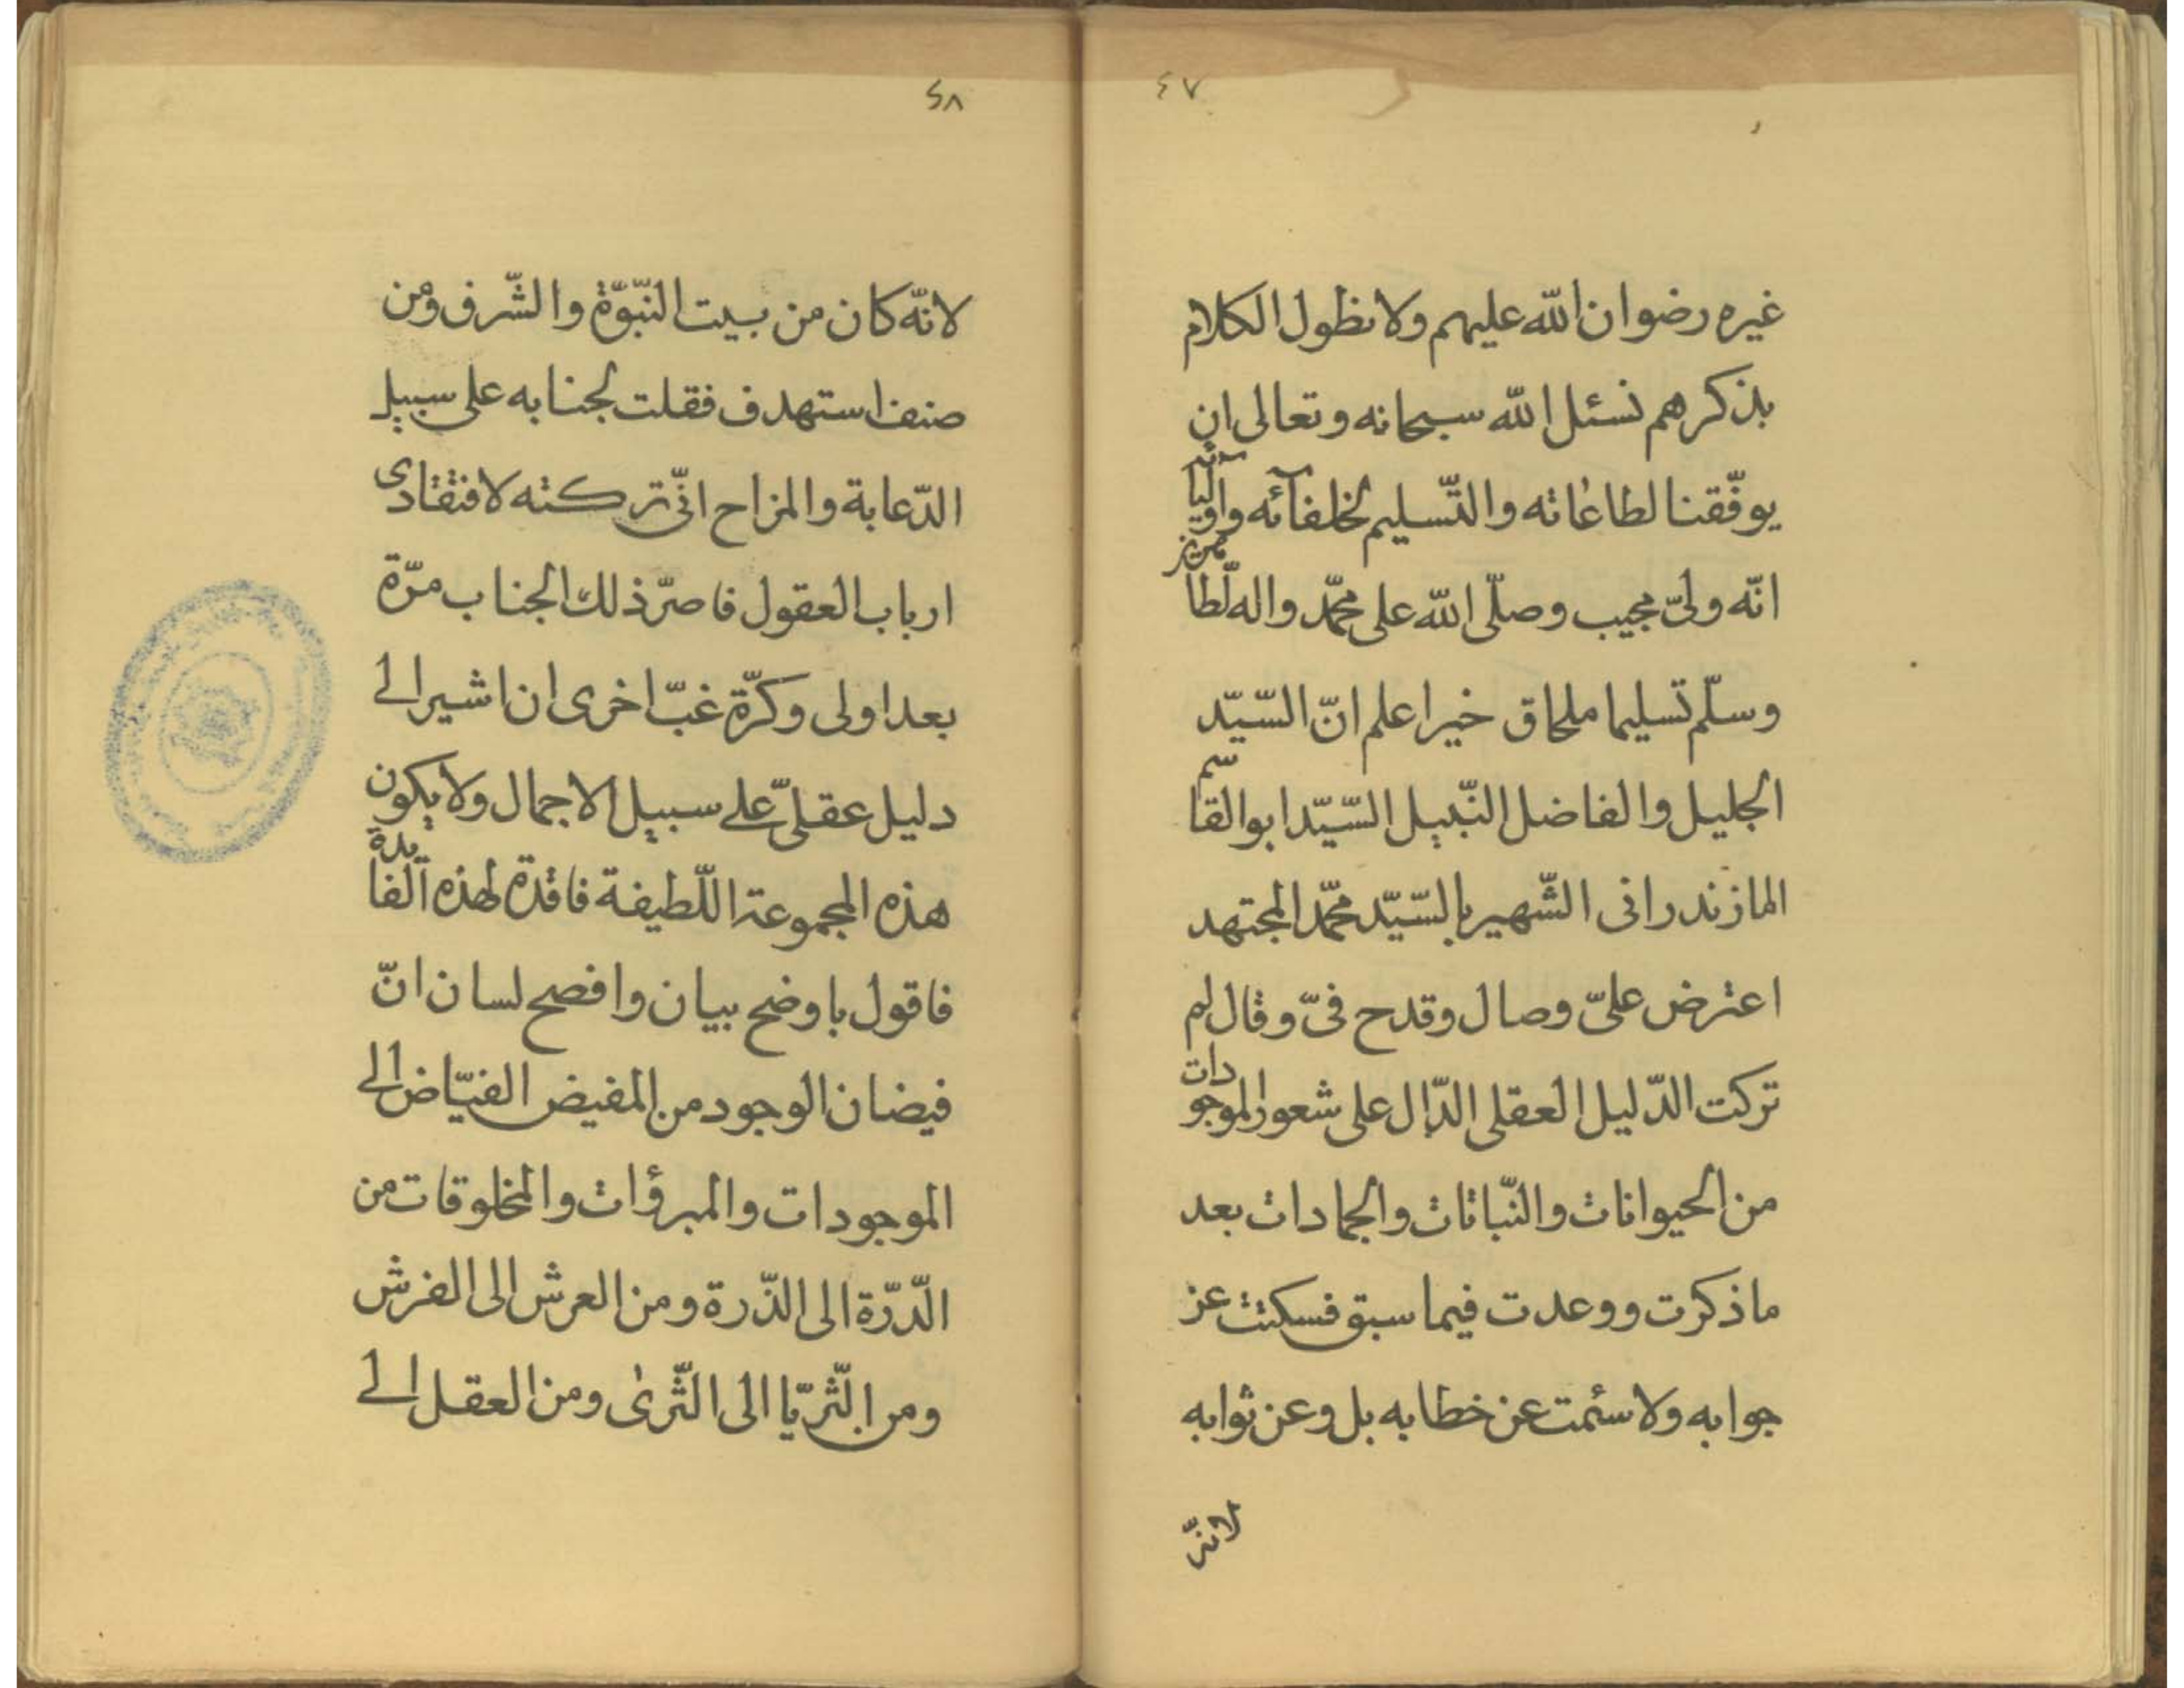 ٤٧
غيره رضوان الله عليهم ولا نطول الكلام
بذكرهم نسئل الله سبحانه وتعالى ان
يوفّقنا لطاعاته والتّسليم لخلفآئه واوليآئه
انّه ولىّ مجيب وصلّى الله على محمّد واله الطاهرين
وسلّم تسليما ملحاق خير اعلم انّ السّيّد
الجليل والفاضل النّبيل السّيّد ابو القاسم
المازندرانى الشّهير بالسّيّد محمّد المجتهد
اعترض علىّ وصال وقدح فىّ وقال لم
تركت الدّليل العقلى الدّال على شعور الموجودات
من الحيوانات والنّباتات والجمادات بعد
ما ذكرت ووعدت فيما سبق فسكتت عن
جوابه ولا سئمت عن خطابه بل وعن ثوابه
لانّه
٤٨
لانّه كان من بيت النّبوّة والشّرف ومن
صنف استهدف فقلت لجنابه على سبيل
الدّعابة والمزاح انّى تركته لافتقادى
ارباب العقول فاصرّ ذلك الجناب مرّة
بعد اولى وكرّة غبّ اخرى ان اشير الى
دليل عقلىّ على سبيل الاجمال ولا يكون
هذه المجموعة اللّطيفة فاقدة لهذه الفايدة
فاقول باوضح بيان وافصح لسان انّ
فيضان الوجود من المفيض الفيّاض الى
الموجودات والمبرؤات والمخلوقات من
الدّرّة الى الذّرة ومن العرش الى الفرش
ومن الثّريّا الى الثّرى ومن العقل الى